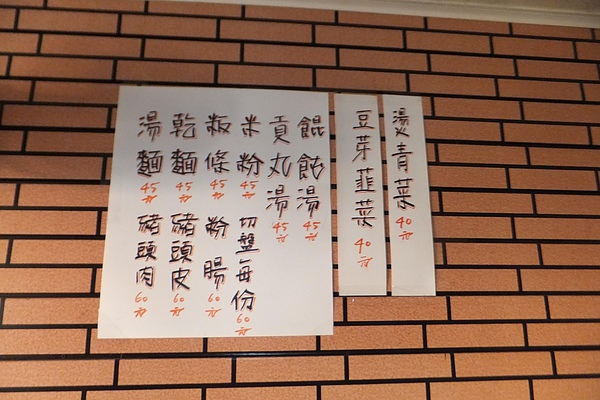 燙青菜 40元
豆芽韮菜 40元
餛飩湯 45元
貢丸湯 45元
米粉 45元 切盤每份 60元
粄條 45元 粉腸 60元
乾麵 45元 豬頭皮 60元
湯麵 45元 豬頭肉 60元